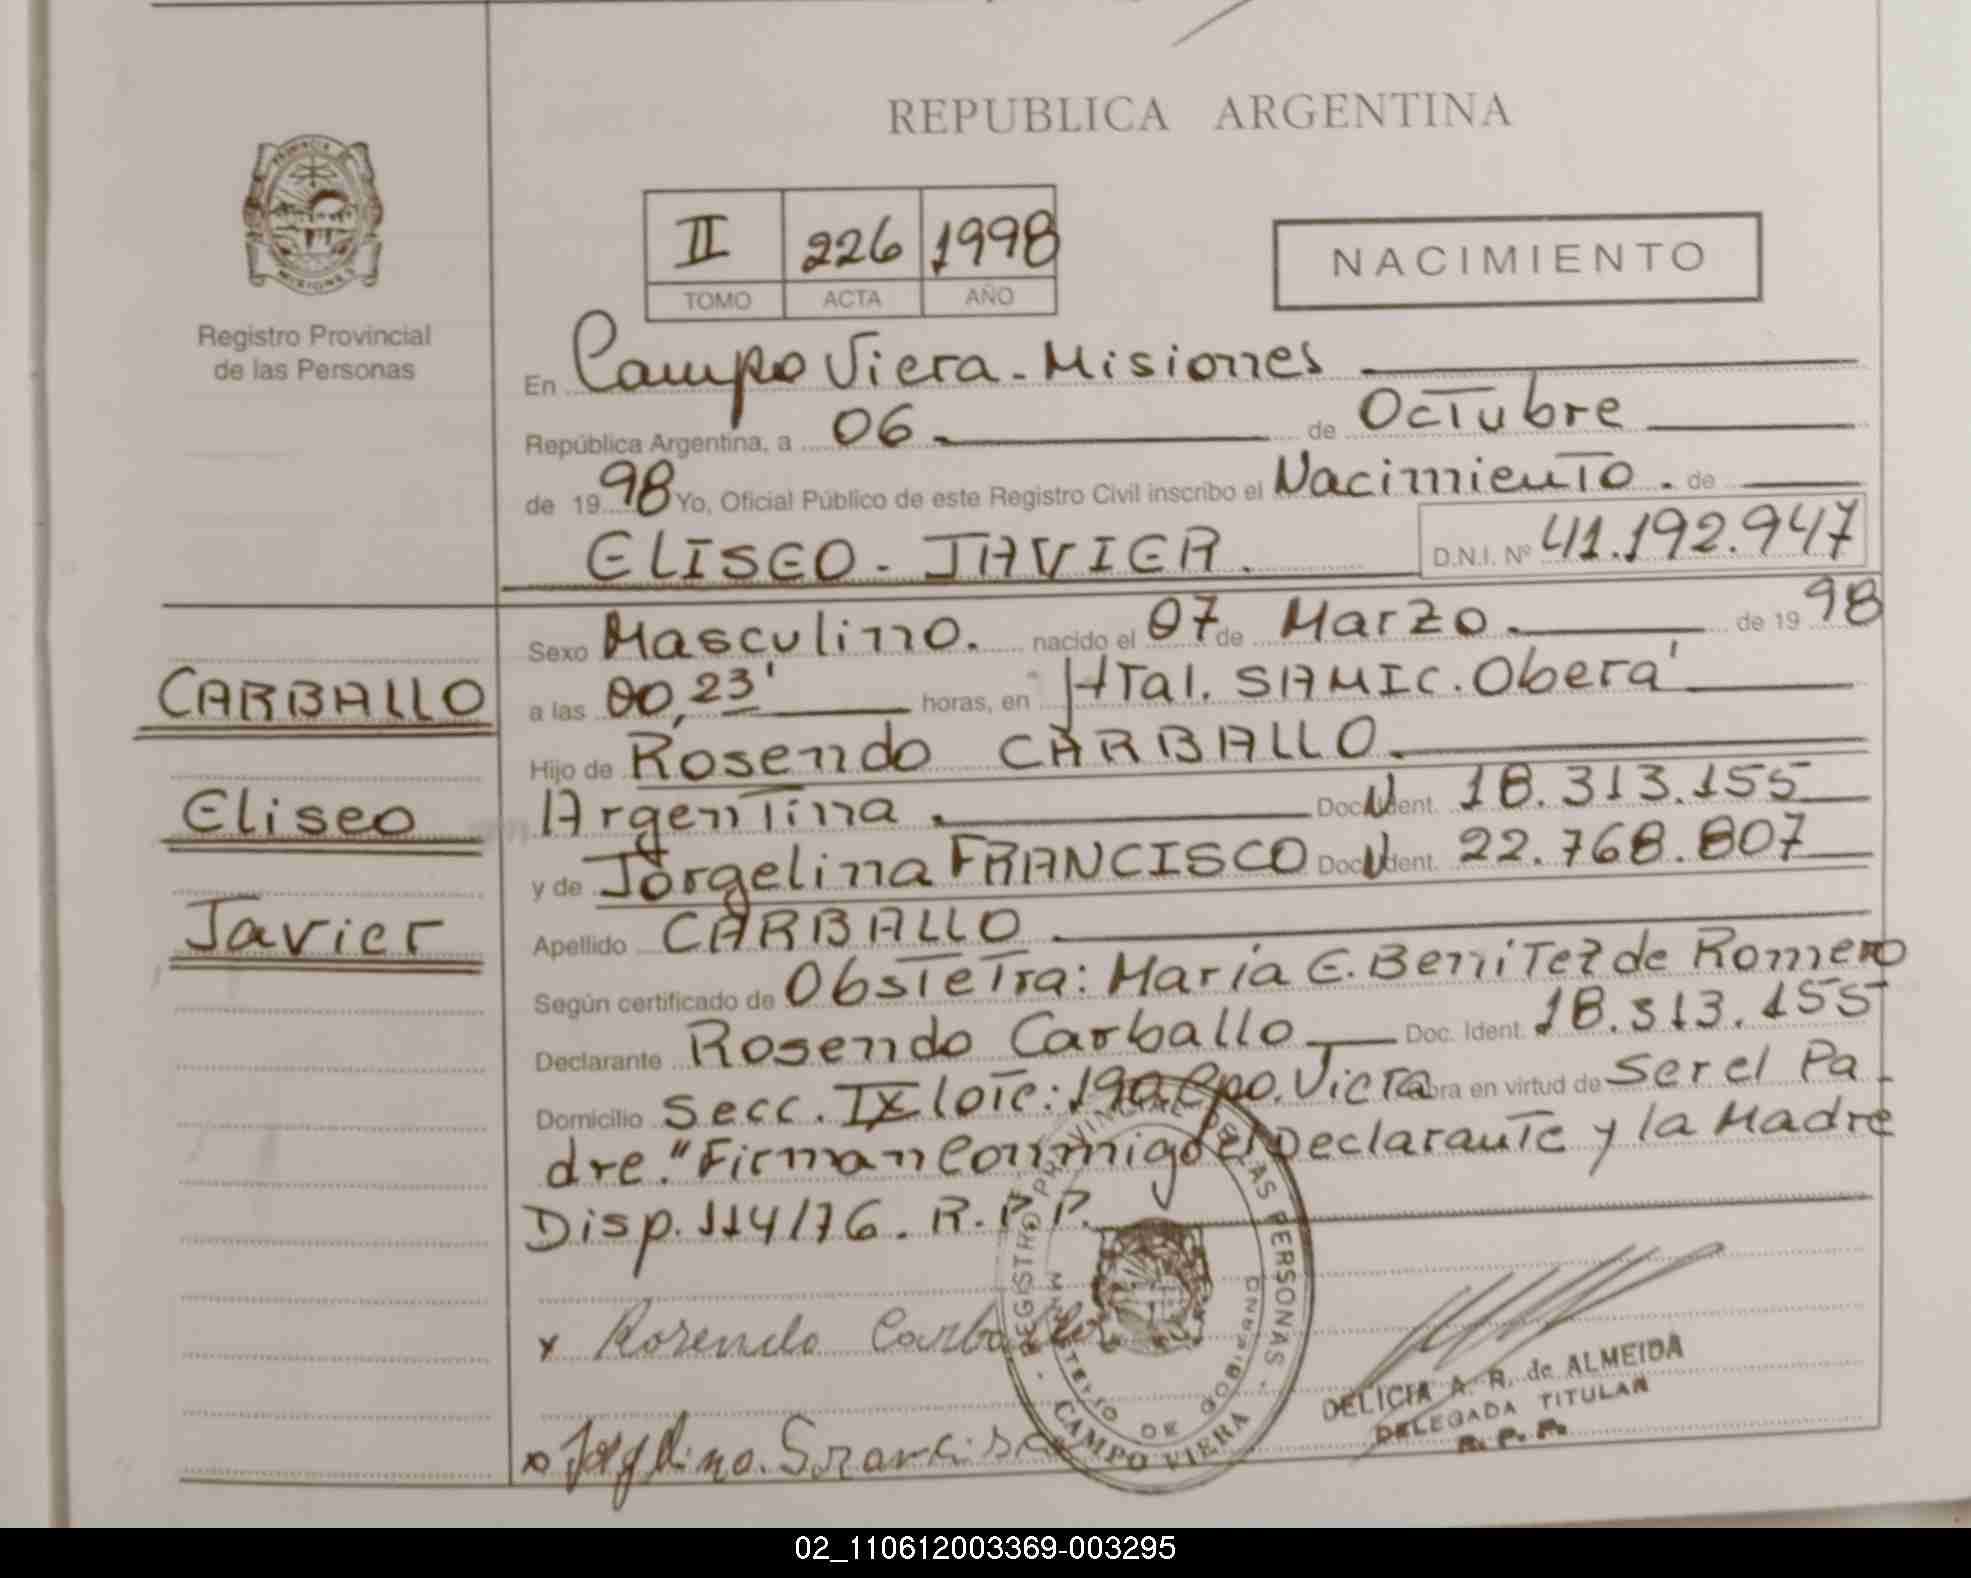 REPUBLICA ARGENTINA
PROVINCIA DE MISIONES
Registro Provincial
de las Personas
II 226 1998
TOMO ACTA AÑO
NACIMIENTO
En Campo Viera - Misiones
República Argentina, a 06 de Octubre
de 1998 Yo, Oficial Público de este Registro Civil inscribo el Nacimiento. de
ELISEO - JAVIER. D.N.I. Nº 41.192.947
Sexo Masculino. nacido el 07 de Marzo. de 1998
CARBALLO
a las 00,23' horas, en Htal. SAMIC. Oberá
Hijo de Rosendo CARBALLO.
Eliseo
Argentina. Doc. Ident. 18.313.155
y de Jorgelina FRANCISCO Doc. Ident. 22.768.807
Javier
Apellido CARBALLO.
Según certificado de Obstetra: María E. Benitez de Romero
Declarante Rosendo Carballo Doc. Ident. 18.313.155
Domicilio Secc. IX lote: 190 Cpo. Viera obra en virtud de ser el Pa-
dre." Firman Conmigo el Declarante y la Madre
Disp. 114/76. R.P.P.
x Rosendo Carballo
x Jorgelina. Francisco
REGISTRO PROVINCIAL DE LAS PERSONAS
MINISTERIO DE GOBIERNO
CAMPO VIERA
DELICIA A. R. de ALMEIDA
DELEGADA TITULAR
R. P. P.
02_110612003369-003295